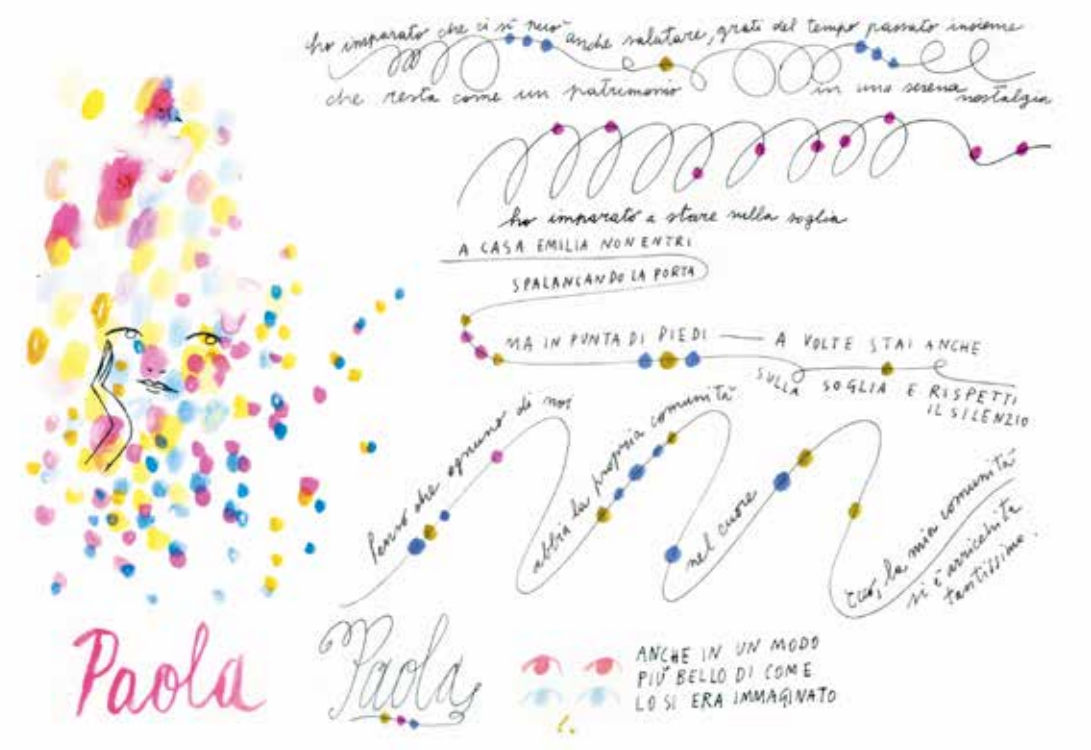 ho imparato che ci si può anche salutare, grati del tempo passato insieme
che resta come un patrimonio in una serena nostalgia
ho imparato a stare sulla soglia
A CASA EMILIA NON ENTRI
SPALANCANDO LA PORTA
MA IN PUNTA DI PIEDI — A VOLTE STAI ANCHE
SULLA SOGLIA E RISPETTI
IL SILENZIO
Penso che ognuno di noi
abbia la propria comunità
nel cuore
ecco, la mia comunità
si è arricchita
tantissimo.
Paola
Paola
ANCHE IN UN MODO
PIÙ BELLO DI COME
LO SI ERA IMMAGINATO